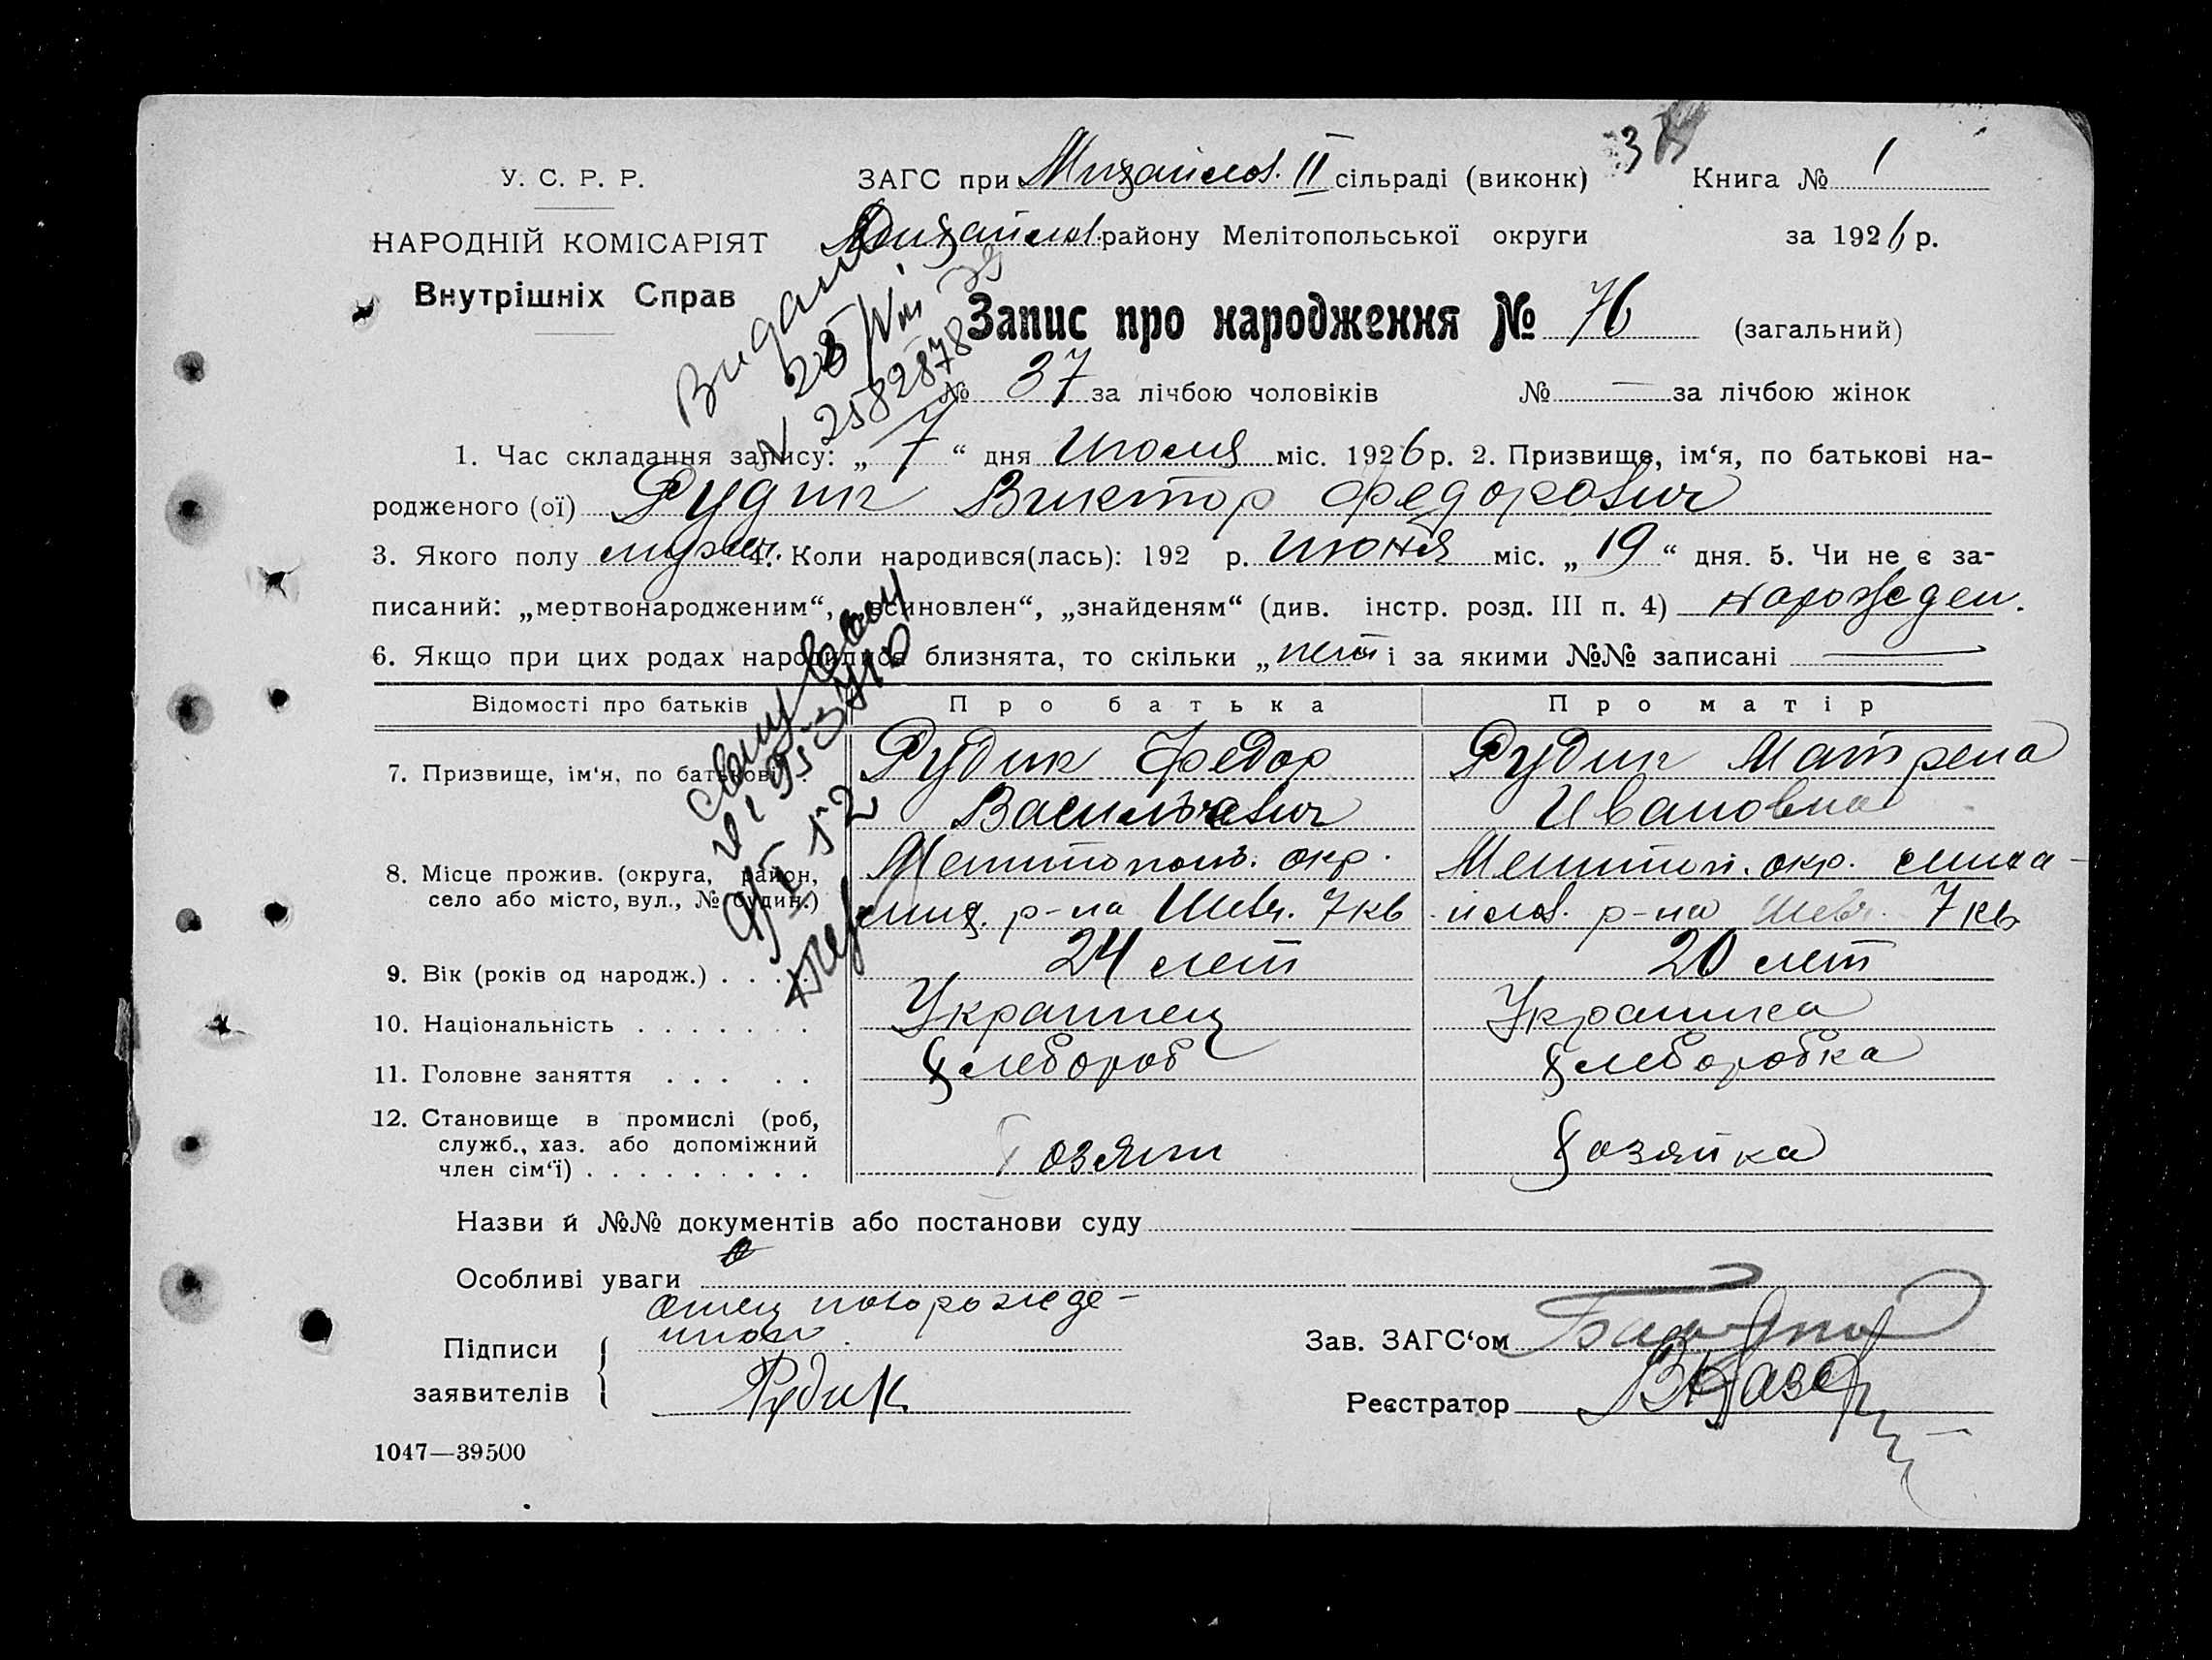 У. С. Р. Р.
НАРОДНІЙ КОМІСАРІЯТ
Внутрішніх Справ
ЗАГС при Михайлов. II сільраді (виконк)
Книга № 1
Михайлов. району Мелітопольської округи
за 1926 р.
Запис про народження № 76 (загальний)
№ 37 за лічбою чоловіків № — за лічбою жінок
N 2582878
1. Час складання запису: „ 7 “ дня Июля міс. 1926 р. 2. Призвище, ім‘я, по батькові на-
родженого (ої) Рудик Виктор Федорович
3. Якого полу мужч. 4. Коли народився(лась): 192 р. июня міс. „ 19 “ дня. 5. Чи не є за-
писаний: „мертвонародженим“, „всиновлен“, „знайденям“ (див. інстр. розд. III п. 4) нарожден.
6. Якщо при цих родах народилися близнята, то скільки „ нет і за якими №№ записані —
Відомості про батьків Про батька Про матір
7. Призвище, ім‘я, по батькові Рудик Федор Рудик Матрена
Васильевич Ивановна
8. Місце прожив. (округа, район, Мелитопол. окр. Мелитоп. окр. миха-
село або місто, вул., № будин.) мих. р-на Шевч. 7 кв йлов. р-на Шевч. 7 кв
9. Вік (років од народж.) . . . . 24 лет 20 лет
10. Національність . . . . . . . Украинец Украинка
11. Головне заняття . . . . . Хлебороб Хлеборобка
12. Становище в промислі (роб,
служб., хаз. або допоміжний
член сім‘ї) . . . . . . . . . Хозяин Хозяйка
Назви й №№ документів або постанови суду
Особливі уваги
отец новорожде-
нного
Підписи
заявителів
Рудик
Зав. ЗАГС‘ом
Реєстратор
1047—39500